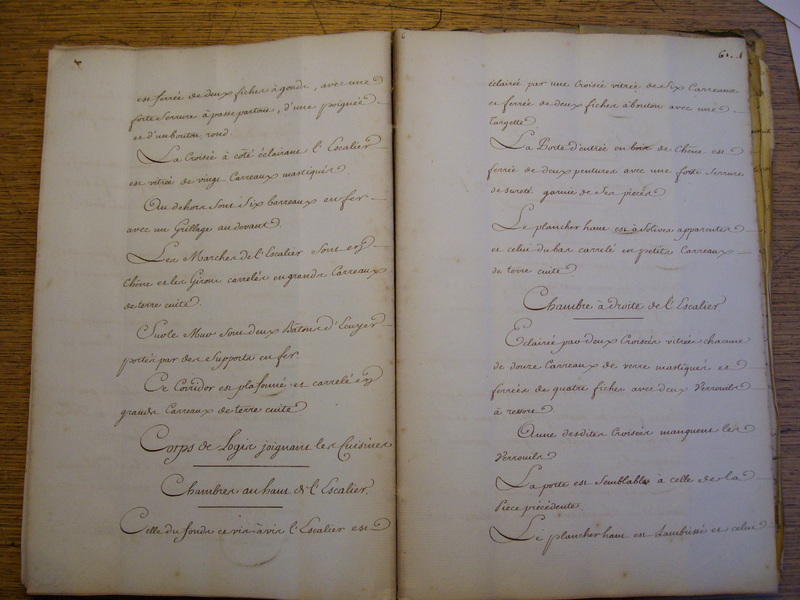 est ferrée de deux fiches à gonds, avec une
forte Serrure à passepartout, d'une poignée
et d'un bouton rond.
La Croisée à côté éclairant l'Escalier
est vitrée de vingt Carreaux mastiqués
Au dehors sont Six barreaux en fer
avec un Grillage au devant.
Les Marches de l'Escalier Sont en
Chêne et les Girons carrelés en grands Carreaux
de terre cuite.
Sur le Mur Sont deux Bâtons d'Ecuyer
portés par des Supports en fer
Ce Corridor est plafonné et carrelé en
grands Carreaux de terre cuite
Corps de Logis joignant les Cuisines
Chambres au haut de l'Escalier.
Celle du fonds et vis-à-vis l'Escalier est
éclairée par une Croisée vitrée de Six Carreaux
et ferrée de deux fiches à bouton avec une
Targette.
La Porte d'entrée en bois de Chêne est
ferrée de deux pentures avec une forte Serrure
de sureté garnie de Ses pièces
Le plancher haut est à Solives apparentes
et celui du bas carrelé en petits Carreaux
de terre cuite
Chambre à droite de l'Escalier
Eclairée par deux Croisées vitrées chacune
de douze Carreaux de verre mastiqués et
ferrées de quatre fiches avec deux Verrouils
à ressort
A une desdites Croisées manquent les
Verrouils
La porte est Semblable à celle de la
Piece précédente.
Le plancher haut est Lambrissé et celui